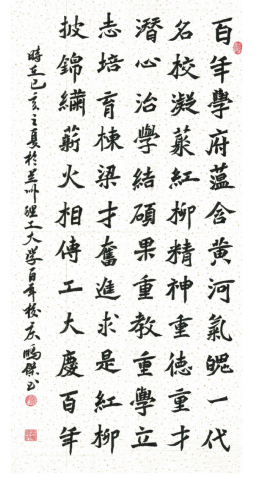 百年學府蕴含黄河氣魄一代
名校凝聚紅柳精神重德重才
潛心治學結碩果重教重學立
志培育棟梁才奮進求是紅柳
披錦繡薪火相傳工大慶百年
時在己亥之夏於兰州理工大学百年校庆鵬傑书